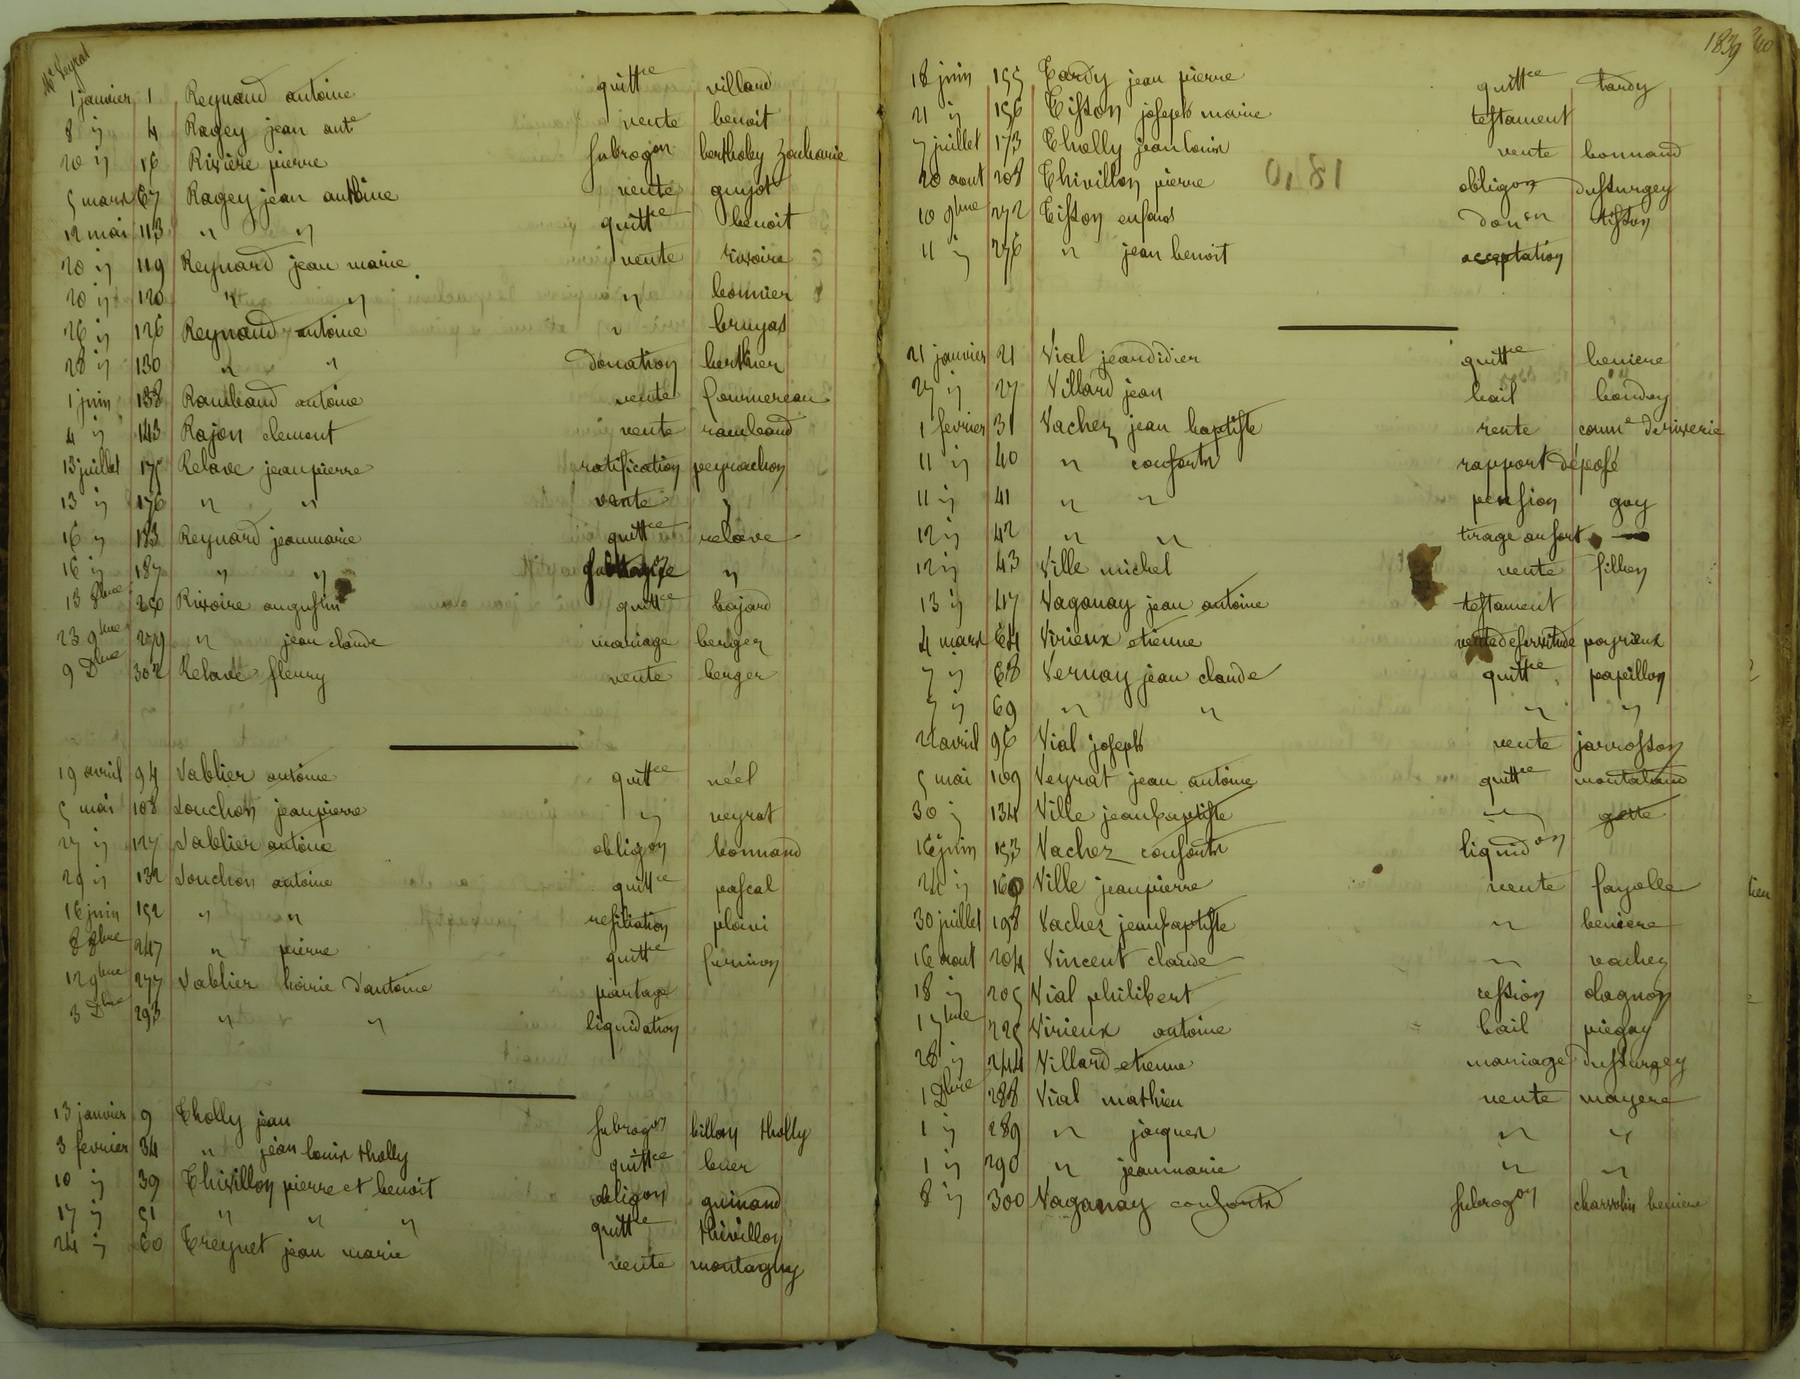 Me Veyrat
1 janvier 1 Reynaud antoine quittce villard
8 ij 4 Ragey jean ante vente benoit
20 ij 16 Rivière pierre subrogon bertholey zacharie
5 mars 67 Ragey jean antoine vente gujot
12 mai 113 " " quittce benoit
20 ij 119 Reynard jean marie vente rivoire
20 ij 120 " " " bonnier
26 ij 126 Reynaud antoine " bruyas
28 ij 130 " " donation berthier
1 juin 138 Rambaud antoine vente fournereau
4 ij 143 Rajon clement vente rambaud
13 juillet 175 Relave jean pierre ratification peyrachon
13 ij 176 " " vente "
16 ij 183 Reynard jeanmarie quittce relave
16 ij 187 " " "
13 8bre 250 Rivoire augustin quittce bajard
23 9bre 279 " jean claude mariage berger
9 Dbre 302 Relave fleury vente berger
19 avril 94 Sablier antoine quittce néel
5 mai 108 Souchon jeanpierre " veyrat
27 ij 127 Sablier antoine obligon bonnand
29 ij 132 Souchon antoine quittce pascal
16 juin 152 " " resiliation
8 8bre 247 " pierre quittce
12 9bre 277 Sablier hoirie d'antoine partage
3 Dbre 293 " " liquidation
13 janvier 9 Tholly jean subrogon billon tholly
3 fevrier 34 " jean louis tholly quittce
10 ij 39 Thivillon pierre et benoit obligon guinand
17 ij 51 " " " quittce thivillon
24 ij 60 Treynet jean marie vente montagny
1839 340
18 juin 155 Tardy jean pierre quittce tardy
21 ij 156 Tisson joseph marie testament
7 juillet 173 Tholly jean louis vente bonnand
20 aout 208 Thivillon pierre obligon dussurgey
10 9bre 272 Tisson enfants donon tisson
11 ij 276 " jean benoit acceptation
21 janvier 21 Vial jean didier quittce beniere
27 ij 27 Villard jean bail
1 fevrier 31 Vachez jean baptiste rente comne de riverie
11 ij 40 " consorts rapport déposé
11 ij 41 " " pension guy
12 ij 42 " " tirage au sort
12 ij 43 Ville michel vente
13 ij 47 Vaganay jean antoine testament
4 mars 64 Virieux etienne vente de servitude poyrieux
7 ij 68 Vernay jean claude quittce papillon
7 ij 69 " " " "
22 avril 96 Vial joseph vente jarrosson
5 mai 109 Veyrat jean antoine quittce montaland
30 ij 134 Ville jean baptiste " gotte
16 juin 153 Vachez consorts liquidon
24 ij 160 Ville jeanpierre vente fayolle
30 juillet 198 Vachez jean baptiste " beniere
16 aout 204 Vincent claude " vachez
18 ij 205 Vial philibert cession dagnon
1 7bre 225 Virieux antoine bail piegay
28 ij 244 Villard etienne mariage dussurgey
1 Dbre 288 Vial mathieu vente mayere
1 ij 289 " jacques " "
1 ij 290 " jeanmarie " "
8 ij 300 Vaganay consorts subrogon charvolin beniere